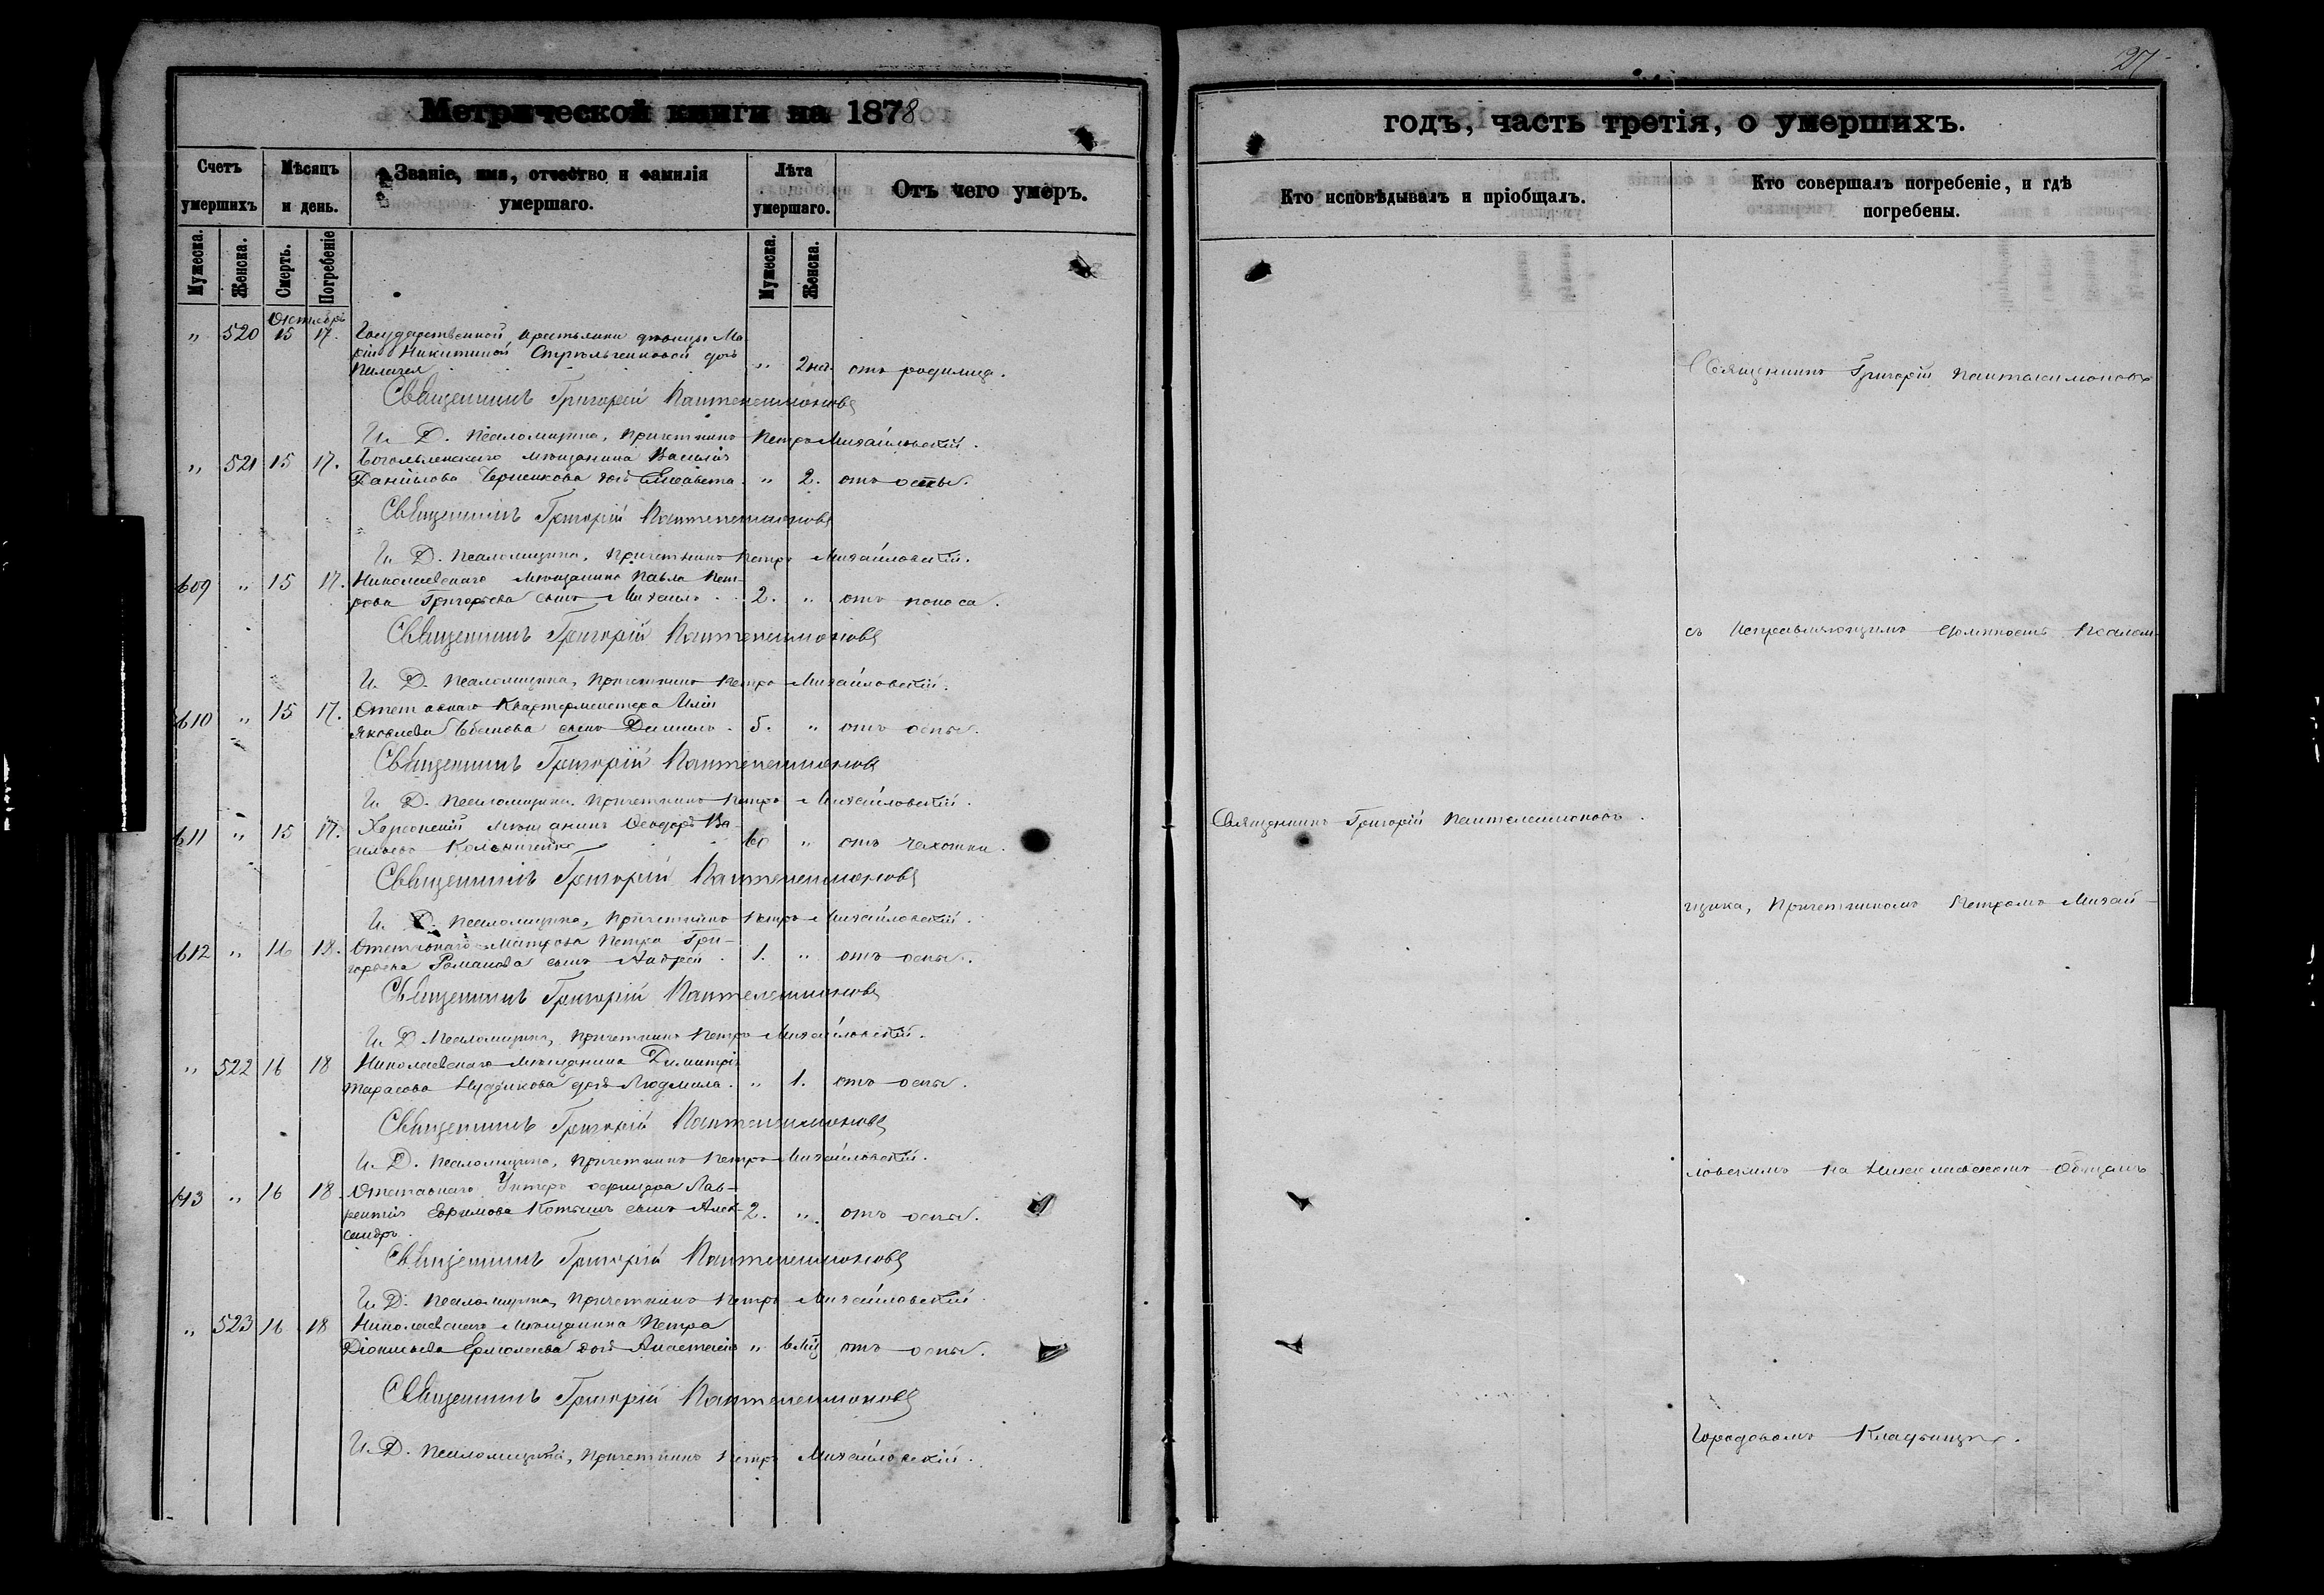 Метрической книги на 1878
Счетъ умершихъ
Мѣсяцъ и день.
Званіе, имя, отчество и фамилія умершаго.
Лѣта умершаго.
Отъ чего умеръ.
Мужеска.
Женска.
Смерть.
Погребеніе
Мужеска.
Женска.
Октябрь
" 520 15 17. Государственной крестьянки дѣвицы Ма-
ріи Никитиной Стрѣльчиковой дочь
Пелагея " 2 нед. отъ родимца.
Священникъ Григорій Пантелеимоновъ
И. Д. Псаломщика, Причетникъ Петръ Михайловскій.
" 521 15 17. мѣщанина Василія
Даніилова дочь Елисавета " 2. отъ оспы.
Священникъ Григорій Пантелеимоновъ
И. Д. Псаломщика, Причетникъ Петръ Михайловскій.
609 " 15 17. Николаевскаго мѣщанина Павла Пет-
рова Григорьева сынъ Михаилъ 2. " отъ поноса.
Священникъ Григорій Пантелеимоновъ
И. Д. Псаломщика, Причетникъ Петръ Михайловскій.
610 " 15 17. Отставнаго Квартирмейстера Иліи
Яковлева сынъ Даніилъ 5. " отъ оспы.
Священникъ Григорій Пантелеимоновъ
И. Д. Псаломщика, Причетникъ Петръ Михайловскій.
611 " 15 17. Херсонскій мѣщанинъ Ѳеодоръ Ва-
сильевъ Кольниченко 60 " отъ чахотки.
Священникъ Григорій Пантелеимоновъ
И. Д. Псаломщика, Причетникъ Петръ Михайловскій.
612 " 16 18. Отставнаго Матроса Петра Гри-
горьева Романова сынъ Андрей 1. " отъ оспы.
Священникъ Григорій Пантелеимоновъ
И. Д. Псаломщика, Причетникъ Петръ Михайловскій.
" 522 16 18 Николаевскаго мѣщанина Димитрія
Тарасова дочь Людмила. " 1. отъ оспы.
Священникъ Григорій Пантелеимоновъ
И. Д. Псаломщика, Причетникъ Петръ Михайловскій.
613 " 16 18 Отставнаго Унтеръ офицера Лав-
рентія Ефимова сынъ Алек- 2. " отъ оспы.
сандръ.
Священникъ Григорій Пантелеимоновъ
И. Д. Псаломщика, Причетникъ Петръ Михайловскій
" 523 16 18 Николаевскаго мѣщанина Петра
Діонисьева Ермолаева дочь Анастасія " 6 мѣс отъ оспы.
Священникъ Григорій Пантелеимоновъ
И. Д. Псаломщика, Причетникъ Петръ Михайловскій.
27
годъ, часть третія, о умершихъ.
Кто исповѣдывалъ и пріобщалъ.
Кто совершалъ погребеніе, и гдѣ погребены.
Священникъ Григорій Пантелеимоновъ
съ Исправляющимъ должность Псалом-
Священникъ Григорій Пантелеимоновъ.
щика, Причетникомъ Петромъ Михай-
ловскимъ на Николаевскомъ Общемъ
Городовомъ Кладбищѣ.